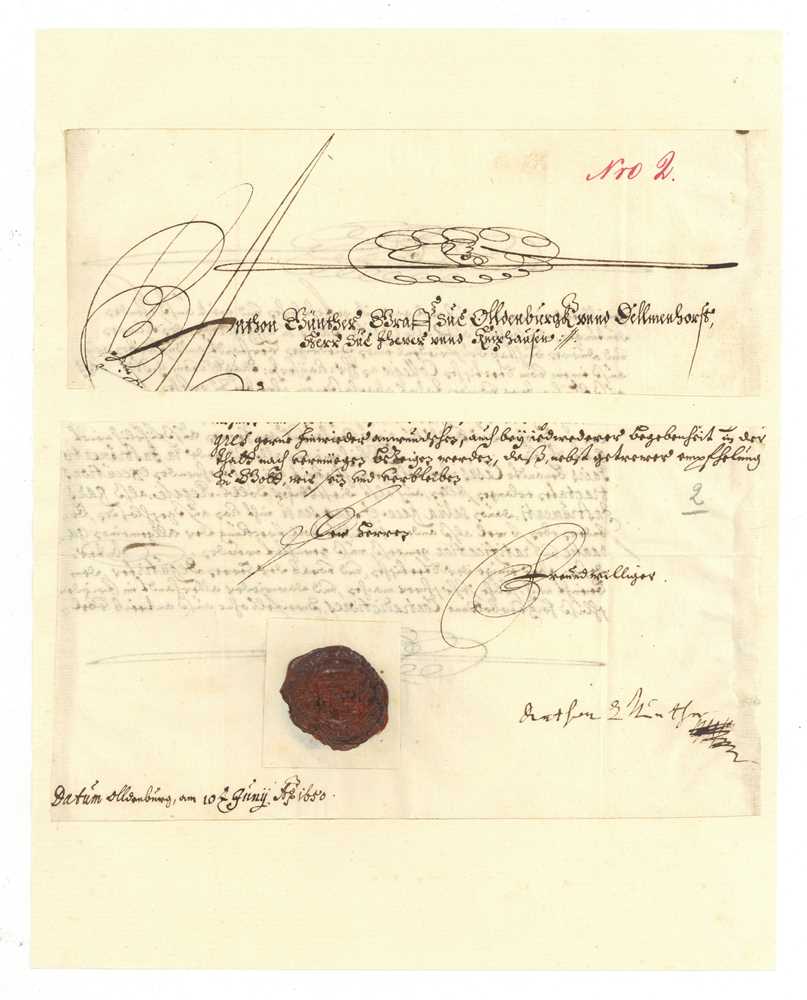 Nro 2.
Anthon Günther, Graff zue Olldenburgk unnd Dellmenhorst,
Herr zue Jhever unnd Kniphausen
gerne hinwieder anwundschen, auch bey iedwederer begebenheit in der
thatt nach vermügen bezeigen werden, daß, nebst getrewer empfhelung
zu Gott, wir sein und verbleiben
2
Der Herren
Freundwilliger.
Anthon Günther
Datum Olldenburg, am 10 Junij Ao 1650.